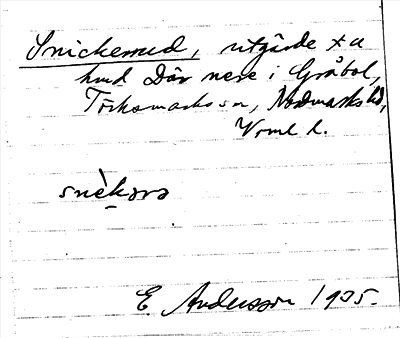 Snickerud, utgårde t. a
hmd Där nere i Gråbol,
Töcksmarks sn, Nordmarks hd,
Vrml l.
snèkərə
E. Andersson 1905.